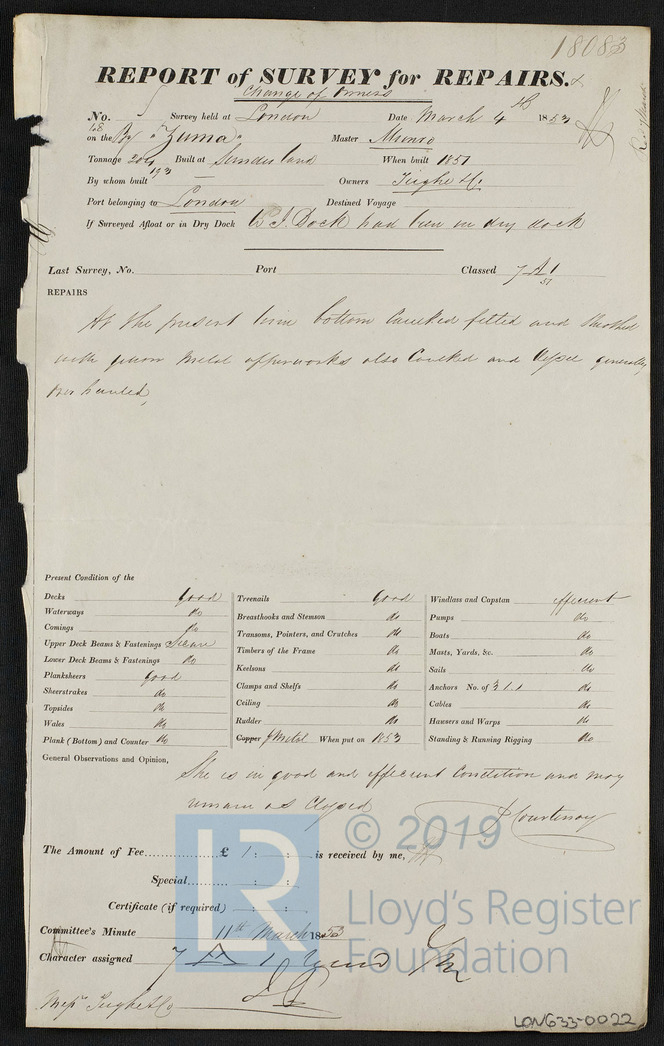 18083
REPORT of SURVEY for REPAIRS.
Change of Owners
No. Survey held at London Date March 4th 1853
on the Bg "Zuma" Master Munro
Tonnage 204 Built at Sunderland When built 1851
193
By whom built — Owners Tughe & Co
Port belonging to London Destined Voyage
If Surveyed Afloat or in Dry Dock W. I. Dock had been in dry dock
Last Survey, No. Port Classed 7 A 1
51
REPAIRS
At the present time bottom Caulked felted and sheathed
with yellow metal upperworks also Caulked and Vessel generally
over hauled,
Present Condition of the
Decks Good
Waterways Do
Comings Do
Upper Deck Beams & Fastenings Secure
Lower Deck Beams & Fastenings Do
Planksheers Good
Sheerstrakes do
Topsides do
Wales do
Plank (Bottom) and Counter do
Treenails Good
Breasthooks and Stemson do
Transoms, Pointers, and Crutches do
Timbers of the Frame do
Keelsons do
Clamps and Shelfs do
Ceiling do
Rudder do
Copper Y Metal When put on 1853
Windlass and Capstan efficient
Pumps do
Boats do
Masts, Yards, &c. do
Sails do
Anchors No. of 3.1.1 do
Cables do
Hawsers and Warps do
Standing & Running Rigging Do
General Observations and Opinion,
She is in good and efficient Condition and may
remain as Classed
Courtenay
The Amount of Fee £ 1 : : is received by me,
Special : :
Certificate (if required) : :
Committee's Minute 11th March 1853
Character assigned 7 A 1
Messrs Tughe & Co
LR
© 2019
Lloyd's Register
Foundation
LON633-0022